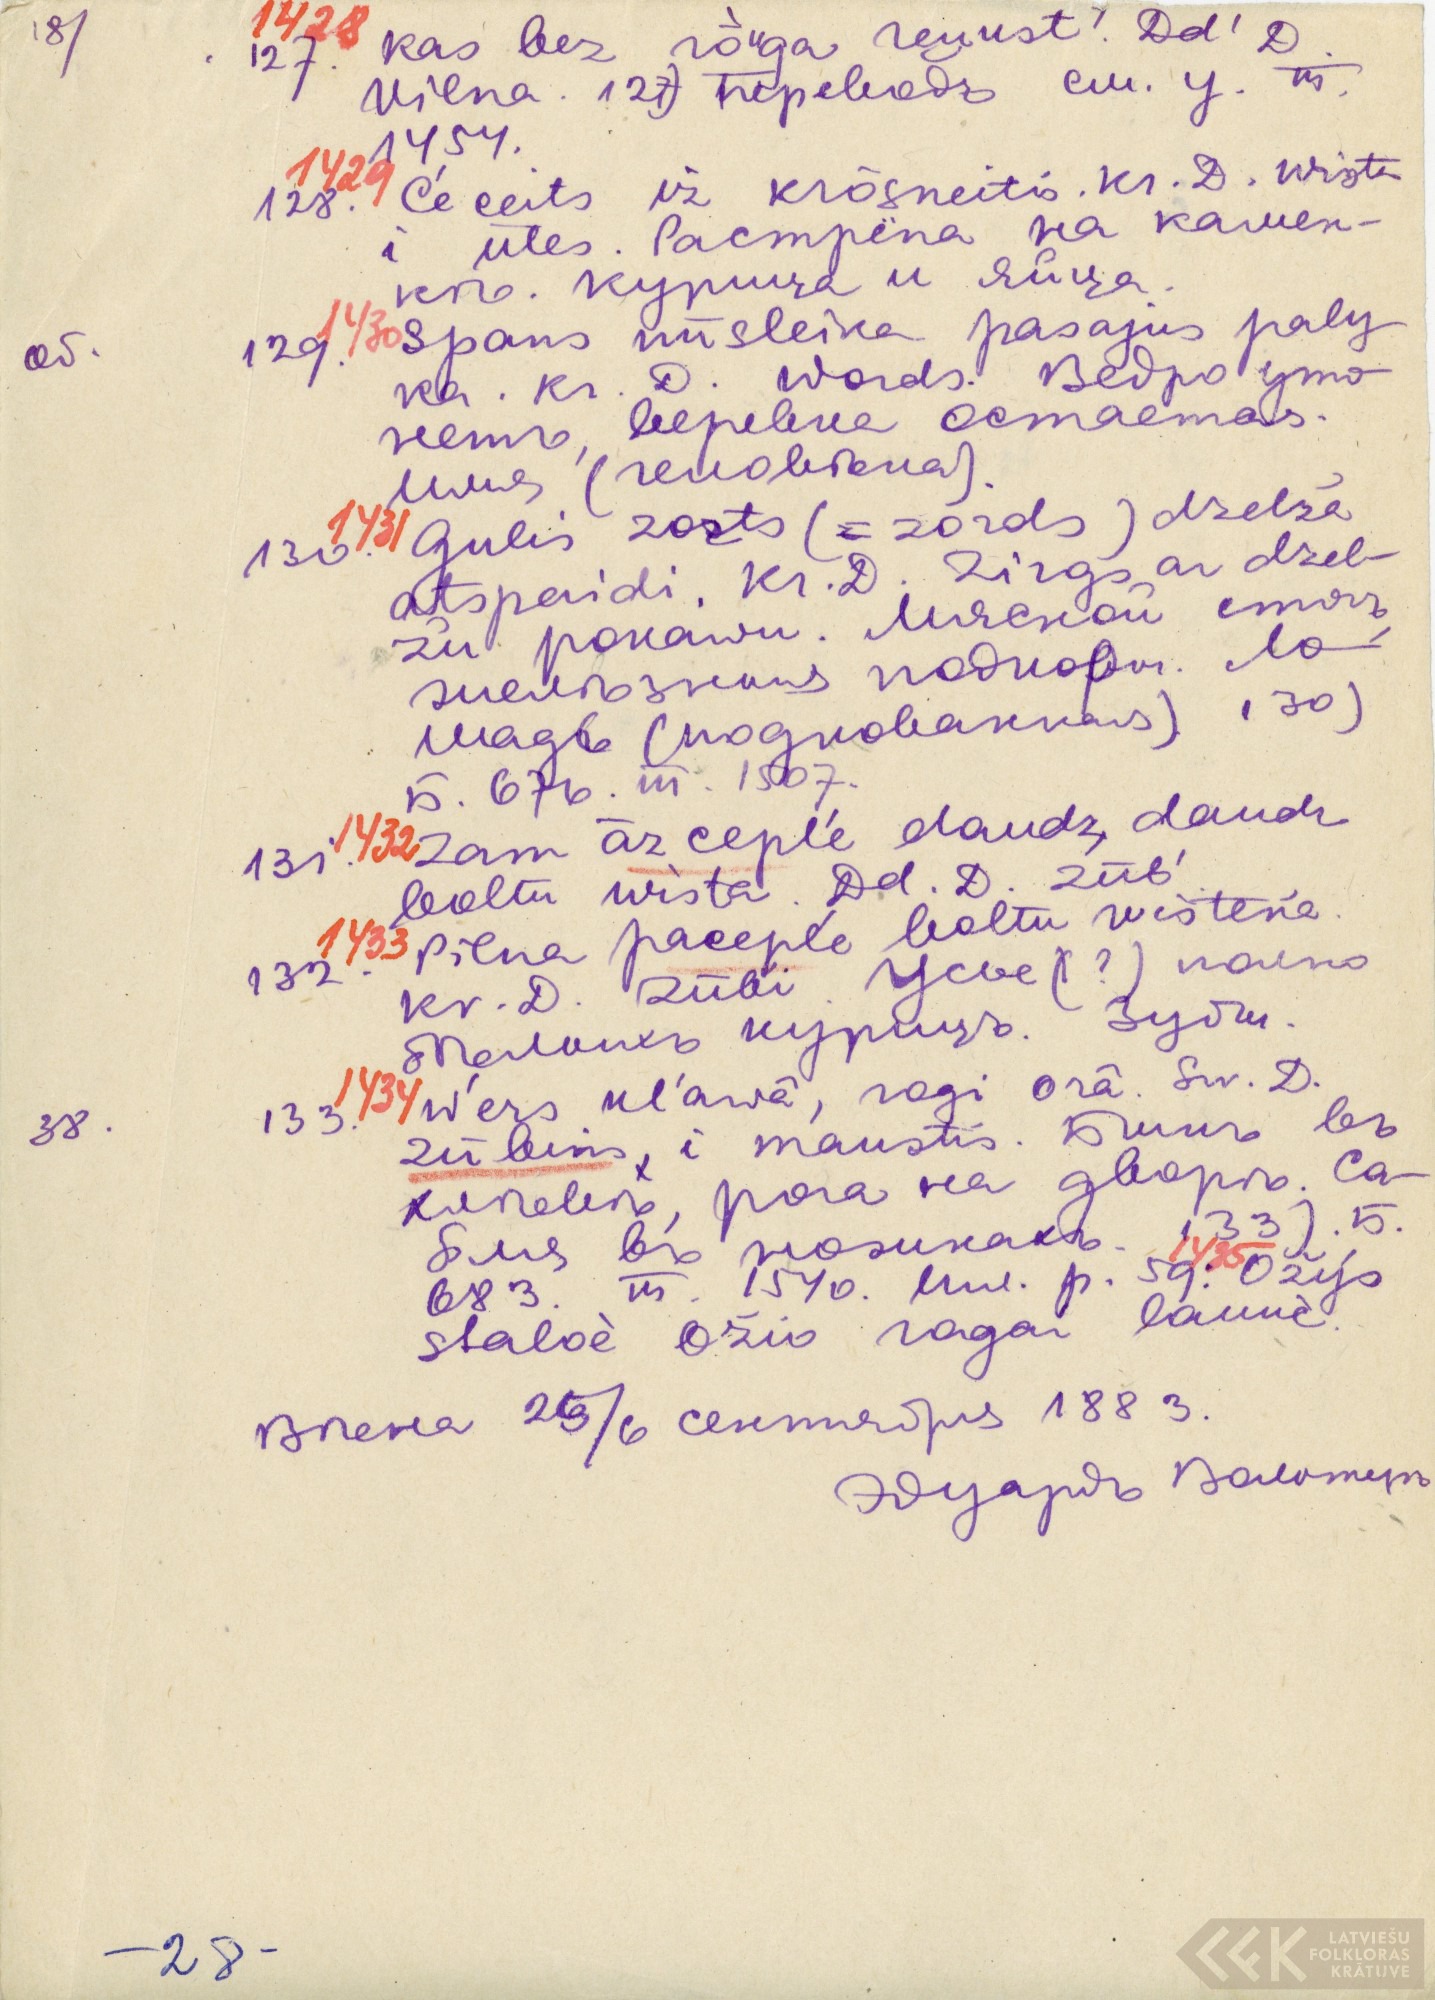 18/
1428
127. Kas bez rōuga reiust? Dd' D.
Vilna. 127) переводъ см. у. III.
1454.
1429
128. Ćeceits iz krōsneitis. Kr. D. wista
i ūtes. Растрёпа на камен-
кѣ. Курица и яйца.
об.
1430
129. Spans nūsleika pasajus paly
ka. Kr. D. Words. Ведро уто-
нетъ, веревка остается.
Имя (человѣка).
1431
130. Gulis zosts (= zords) dzelža
atspaidi. Kr. D. Zirgs ar dzel-
žu pokawu. Мясной стогъ,
желѣзныя подпоры. Ло-
шадь (подкованная) 130)
Б. 676. III. 1507.
1432
131. Zam āz cepl'e daudz, daudz
boltu wista. Dd. D. Zūb'
1433
132. Pilna pacepl'e boltu wisteńa.
Kr. D. Zūbi. Усье(?) полно
бѣлыхъ курицъ. Зубы.
38.
1434
133. Wérs kl'awā, ragi orā. Sw. D.
Zūbins, i maustis. Быкъ въ
хлѣвѣ, рога на дворѣ. Са-
бля въ ножнахъ. 133). Б.
683. III. 1540. Ин. р. 59: Ožys
1435
staloè ožio ragai laukè.
Вѣна 25/6 сентября 1883.
Эдуардъ Вольтеръ
-28-
LATVIEŠU
FOLKLORAS
KRĀTUVE